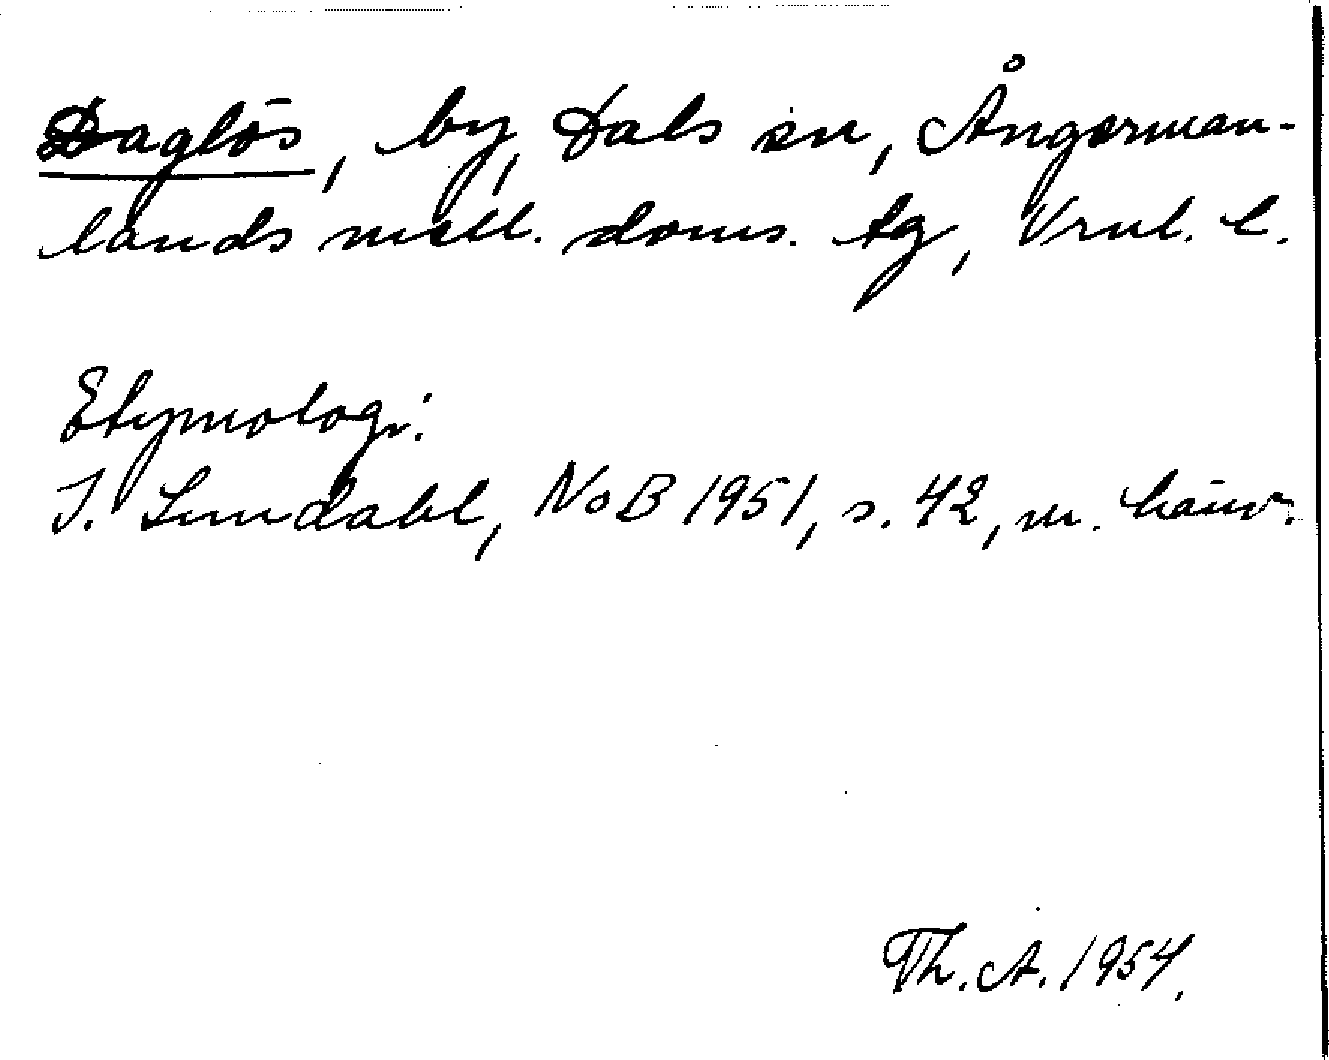 Daglös, by, Dals sn, Ångerman-
lands mell. doms. tg, Vrnl. l.
Etymologi:
I. Lundahl, NoB 1951, s. 42, m. hänv.
Th. A. 1954.